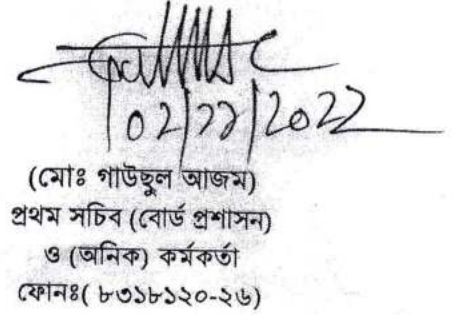 02/22/2022
(মোঃ গাউছুল আজম)
প্রথম সচিব (বোর্ড প্রশাসন)
ও (অনিক) কর্মকর্তা
ফোনঃ( ৮৩১৮১২০-২৬)